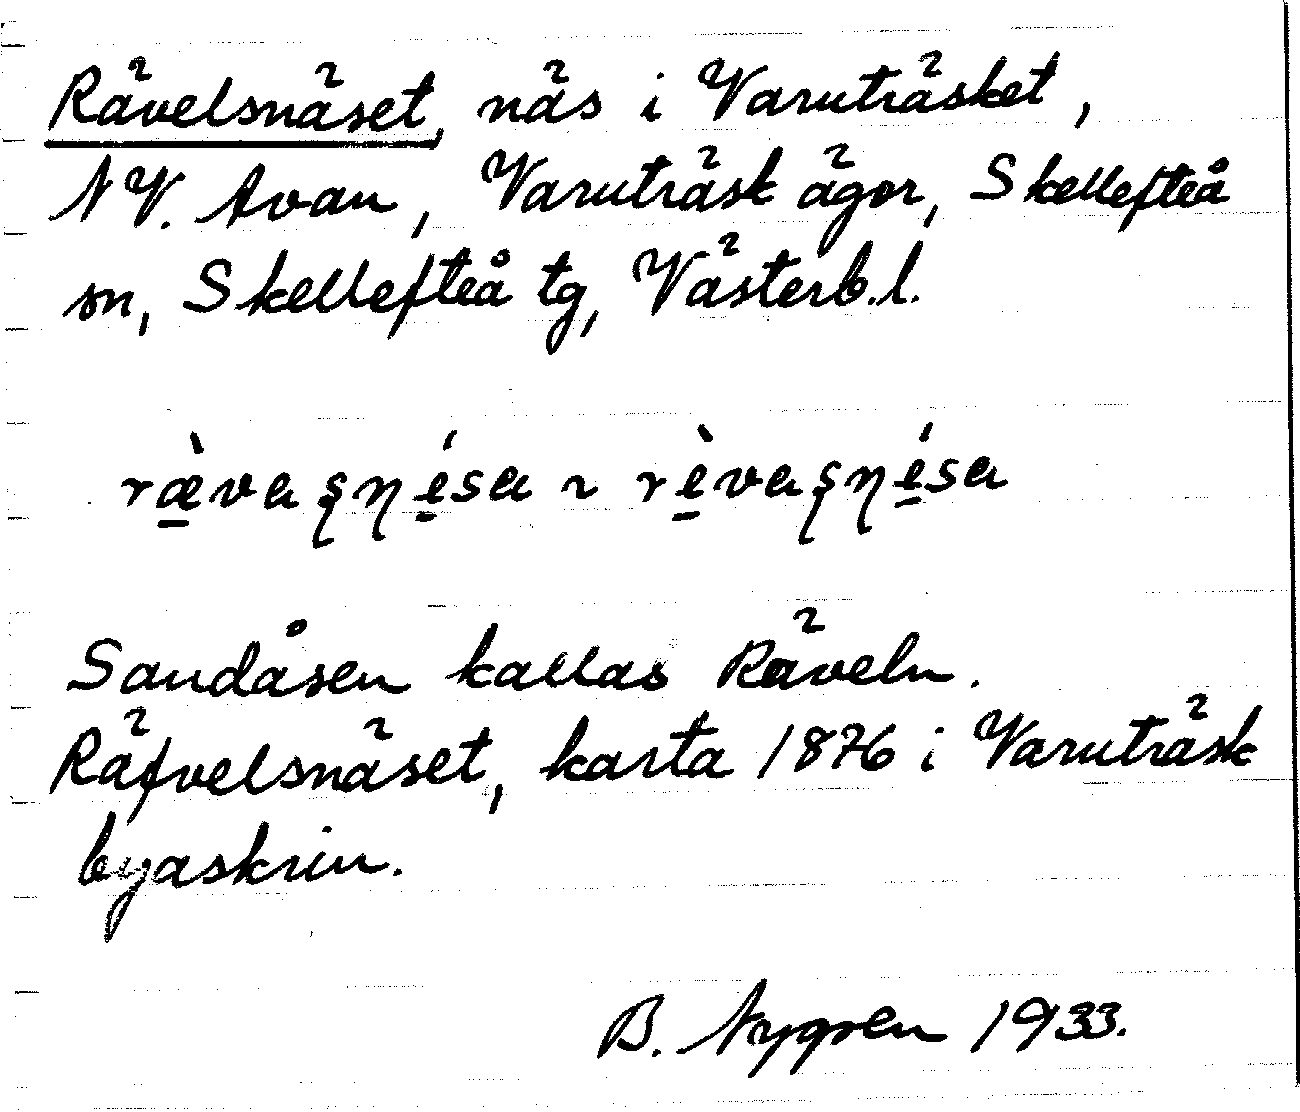 Rävelsnäset, näs i Varuträsket,
NV. Avan, Varuträsk ägor, Skellefteå
sn, Skellefteå tg, Västerb.l.
ræ̱̀vaʂɳé̱sa ~ rè̱vaʂɳé̱sa
Sandåsen kallas Räveln.
Räfvelsnäset, karta 1876 i Varuträsk
byaskrin.
B. Nygren 1933.